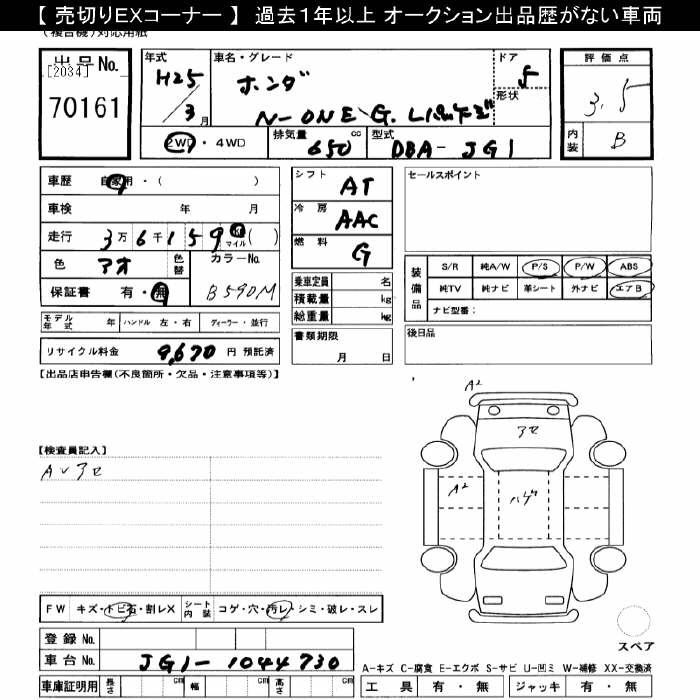 【 売切りEXコーナー 】 過去1年以上 オークション出品歴がない車両
(複合機)対応用紙
出品No.
[2034]
70161
年式 H25/3月
車名・グレード ホンダ
N-ONE G.
ドア 5
形状
2WD・4WD
排気量 650 cc
型式 DBA-JG1
評価点 3.5
内装 B
車歴 自家用・( )
車検 年 月
走行 3万6千159 km マイル ( )
色 アオ 色替 カラーNo. B590M
保証書 有・無
モデル年式 年 ハンドル 左・右 ディーラー・並行
リサイクル料金 9,670 円 預託済
シフト AT
冷房 AAC
燃料 G
乗車定員 名
積載量 kg
総重量 kg
書類期限
月 日
セールスポイント
装備品 S/R 純A/W P/S P/W ABS
純TV 純ナビ 革シート 外ナビ エアB
ナビ型番:
後日品
【出品店申告欄(不良箇所・欠品・注意事項等)】
【検査員記入】
A〃アセ
A2
アセ
A2
ハゲ
FW キズ・トビ石・割レX シート内装 コゲ・穴・汚レ・シミ・破レ・スレ
登録No.
車台No. JG1-1044730
車庫証明用 長さ cm 幅 cm 高さ cm
スペア
A-キズ C-腐食 E-エクボ S-サビ U-凹ミ W-補修 XX-交換済
工具 有・無 ジャッキ 有・無